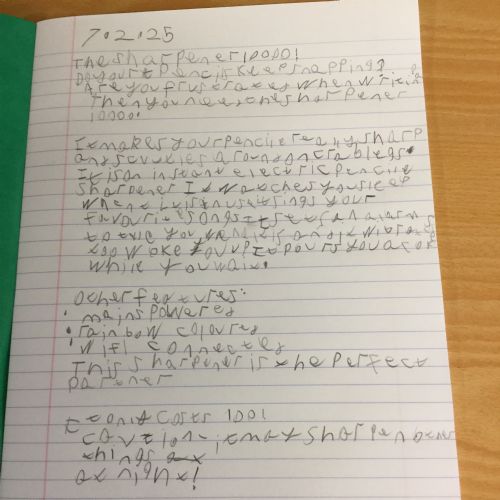 7.2.25
The sharpener 10000!
Do your pencils keep snapping?
Are you frustrated when writing
Then you need the sharpener
10000!
It makes your pencil really sharp
and scuttles around on crab legs.
It is an instant electric pencil
sharpener It watches you sleep
when it is
favourite songs It sets an alarm
to wake you up It pours you a
while you wait.
other features:
• mains powered
• rainbow coloured
• Wifi connected
This sharpener is the perfect
partner
It only costs 100!
caution - it may sharpen other
things
at night!